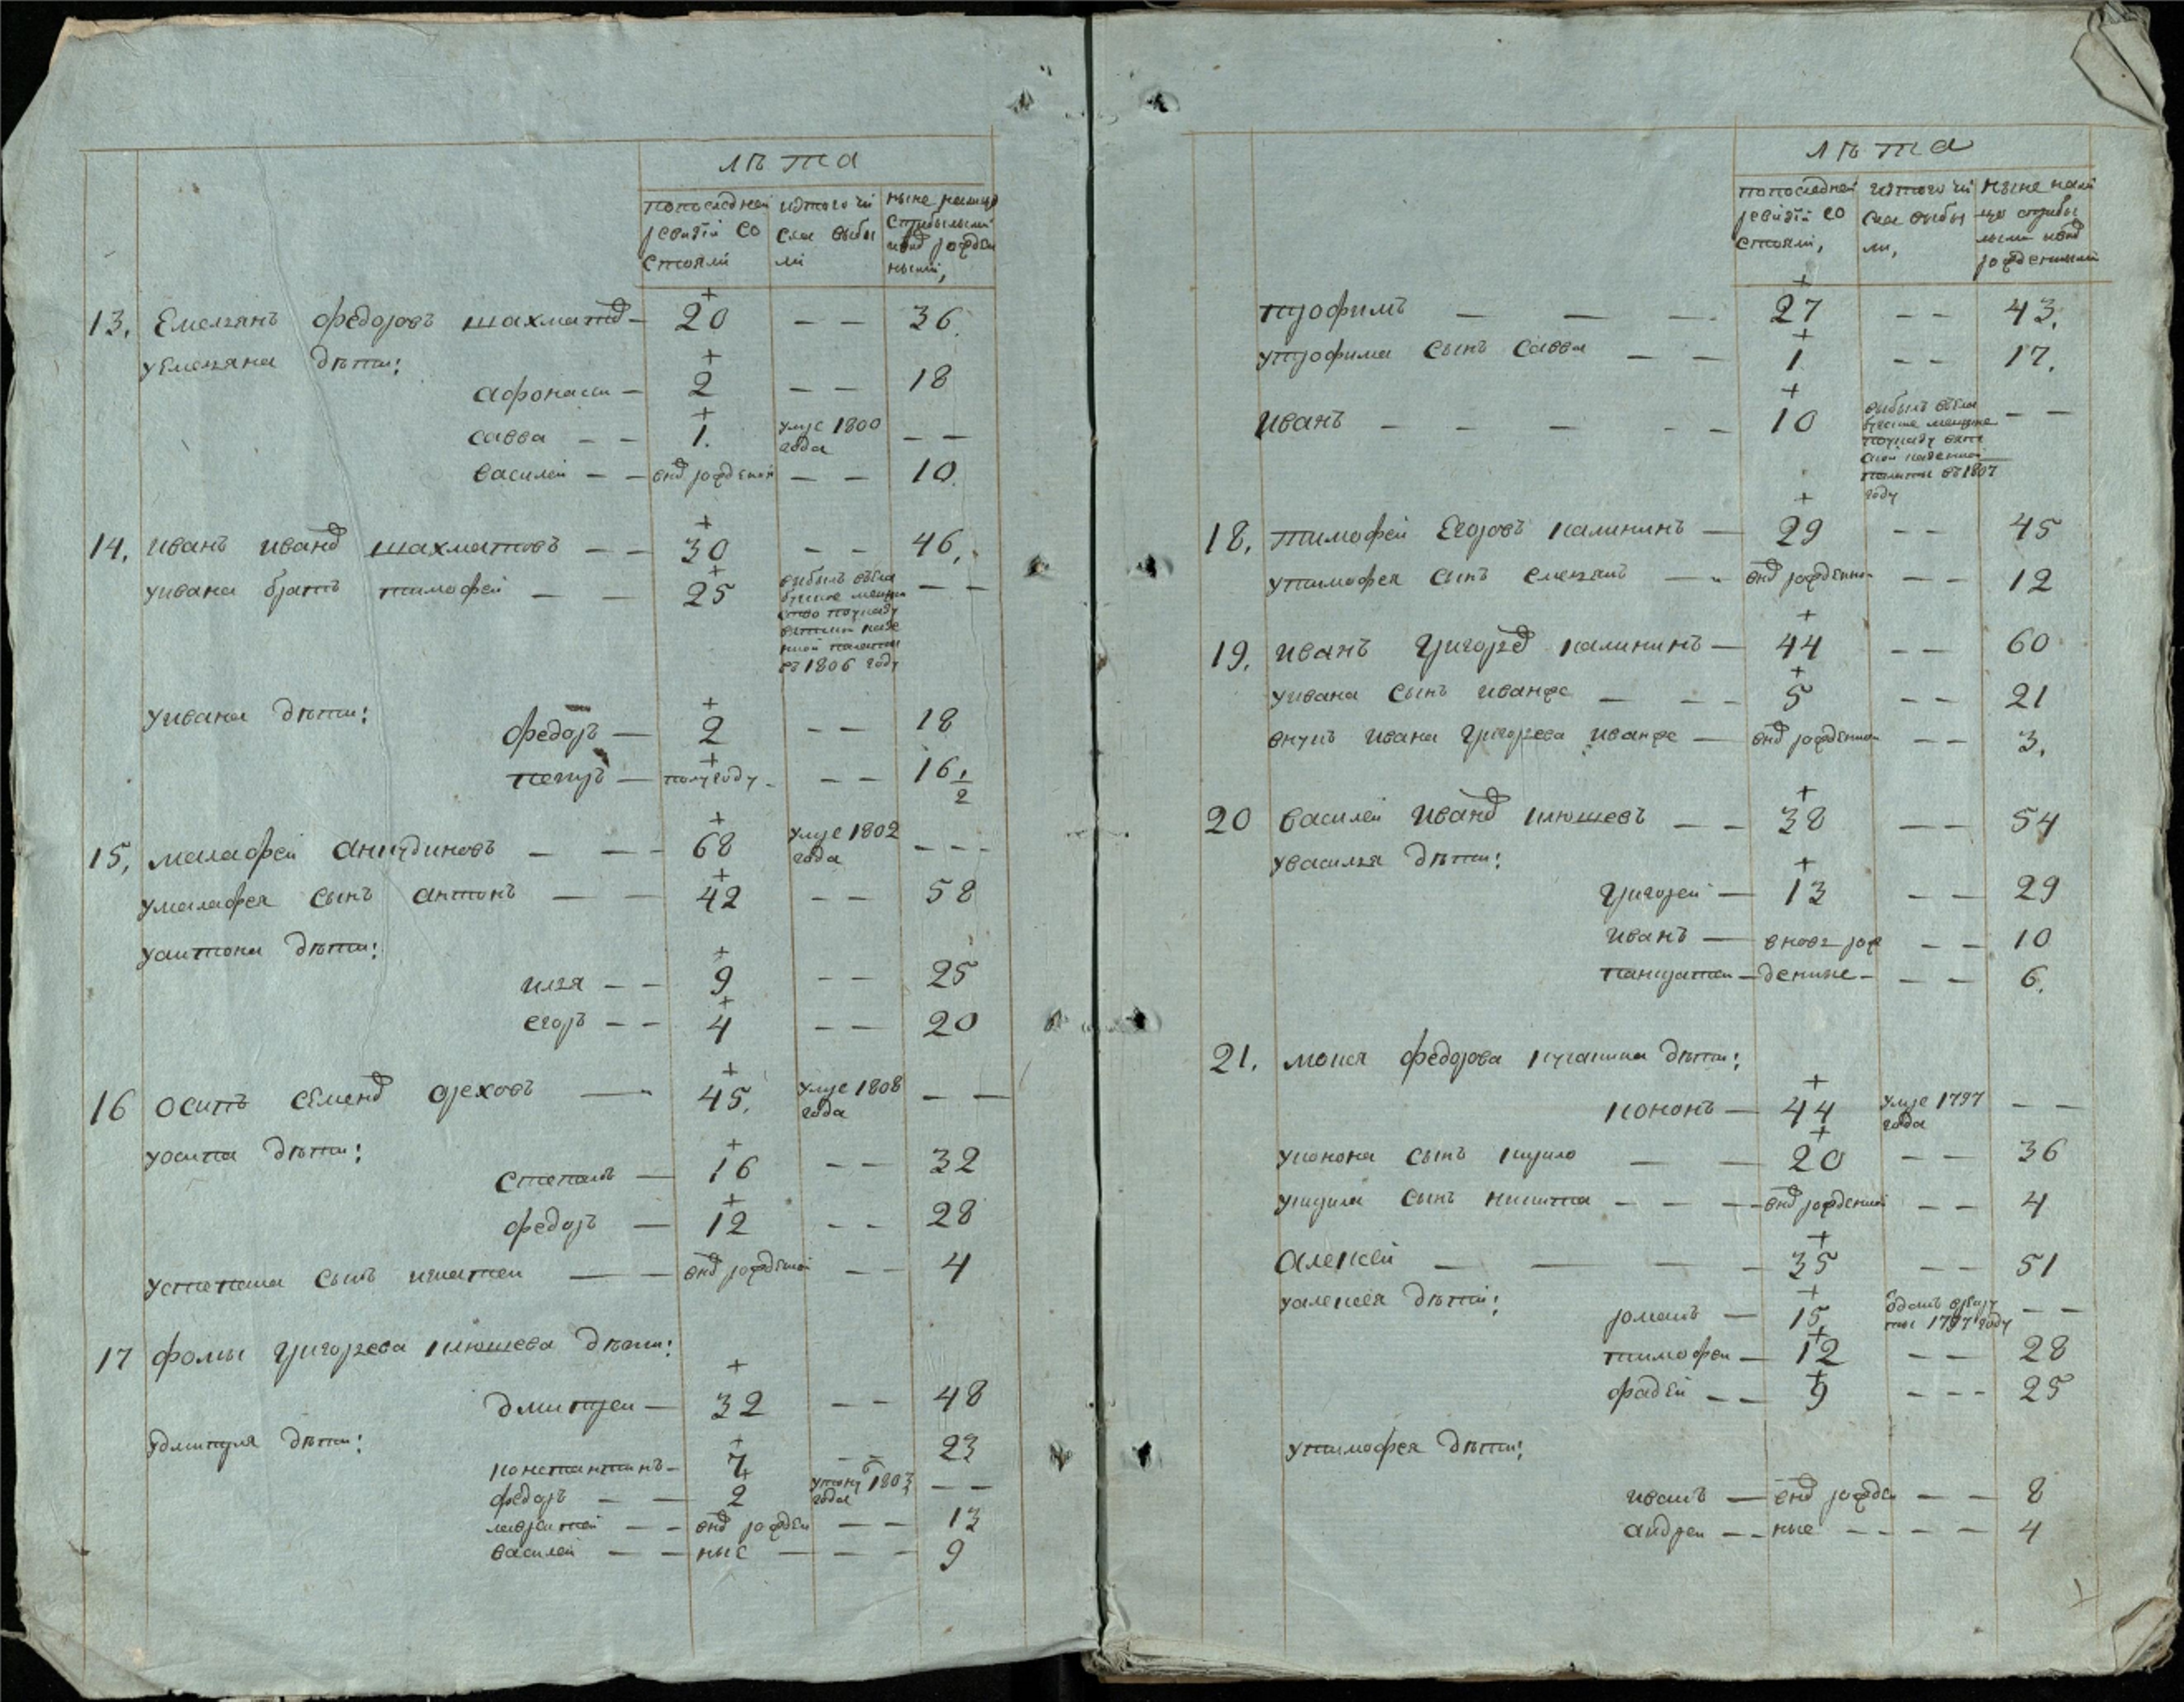 лѣта
попоследней ревизiи состояли
изтого числа выбыли
ныне налицо сприбылыми ивнов рожденными,
13. Емельянъ федоровъ шахматов — 20 — — 36.
уемельяна дѣти:
афонасеи — 2 — — 18
савва — — 1. умре 1800 года — —
василеи — — внов рожденной — — 10.
14. иванъ иванов шахматовъ — — 30 — — 46.
уивана братъ тимофеи — — 25 выбылъ въела бужское мещанство поуказу вятской казенной палаты въ 1806 году — —
уивана дѣти:
федоръ — 2 — — 18
петръ — полугоду — — — 16 1/2
15. малафеи анкудиновъ — — — 68 умре 1802 года — — —
умалафея сынъ антонъ — — 42 — — 58
уантона дѣти:
илья — — 9 — — 25
егоръ — — 4 — — 20
16 осипъ семенов ореховъ — 45. умре 1808 года — —
уосипа дѣти:
степанъ — 16 — — 32
федоръ — 12 — — 28
устепана сынъ игнатеи — — внов рожденной — — 4
17 фомы григорьева клюшева дѣти:
дмитреи — 32 — — 48
удмитрея дѣти:
константинъ — 7 — — 23
федоръ — — 2 утону 1803 года — —
лаврентеи — — внов рожден — — 13
василеи — — ные — — — 9
лѣта
попоследней ревизiи состояли,
изтого числа выбыли,
ныне налицо сприбылыми ивнов рожденными
трофимъ — — — 27 — — 43.
утрофима сынъ савва — — 1 — — 17.
иванъ — — — — — 10 выбылъ въела бужские мещане поуказу вятской казенной палаты въ 1807 году — —
18. тимофеи Егоровъ калининъ — 29 — — 45
утимофея сынъ емельянъ — — внов рожденной — — 12
19. иванъ григоров калининъ — 44 — — 60
уивана сынъ иванже — — — 5 — — 21
внукъ ивана григорьева иванже — внов рожденной — — 3.
20 василеи иванов клюшевъ — — 38 — — 54
увасилья дѣти:
григореи — 13 — — 29
иванъ — вновь рож — — 10
панкратеи — денные — — — 6.
21. мокея федорова кучашина дѣти:
кононъ — 44 умре 1797 года — —
уконона сынъ кирило — — 20 — — 36
укирила сынъ никита — — — внов рожденной — — 4
Алексеи — — — — 35 — — 51
уалексея дѣти:
романъ — 15 одданъ врекруты 1797 году — —
тимофеи — 12 — — 28
фадеи — — 9 — — — 25
утимофея дѣти:
иванъ — внов рожден — — 8
андреи — — ные — — — — 4